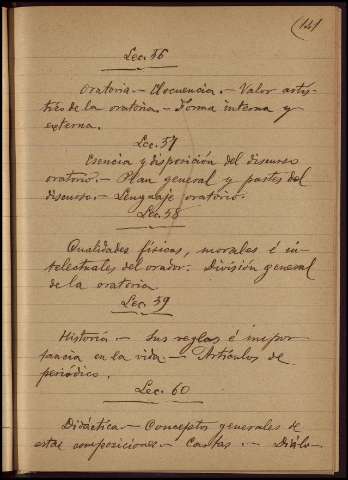 (141
Lec. 56
Oratoria.— Elocuencia.— Valor artís-
tico de la oratoria.— Forma interna y
externa.
Lec. 57
Esencia y disposición del discurso
oratorio.— Plan general y partes del
discurso.— Lenguaje oratorio.
Lec. 58
Qualidades físicas, morales é in-
telectuales del orador. División general
de la oratoria
Lec. 59
Historia.— Sus reglas é impor-
tancia en la vida.— Artículos de
periódico.
Lec. 60
Didáctica.— Conceptos generales de
estas composiciones.— Cartas.— Diálo-